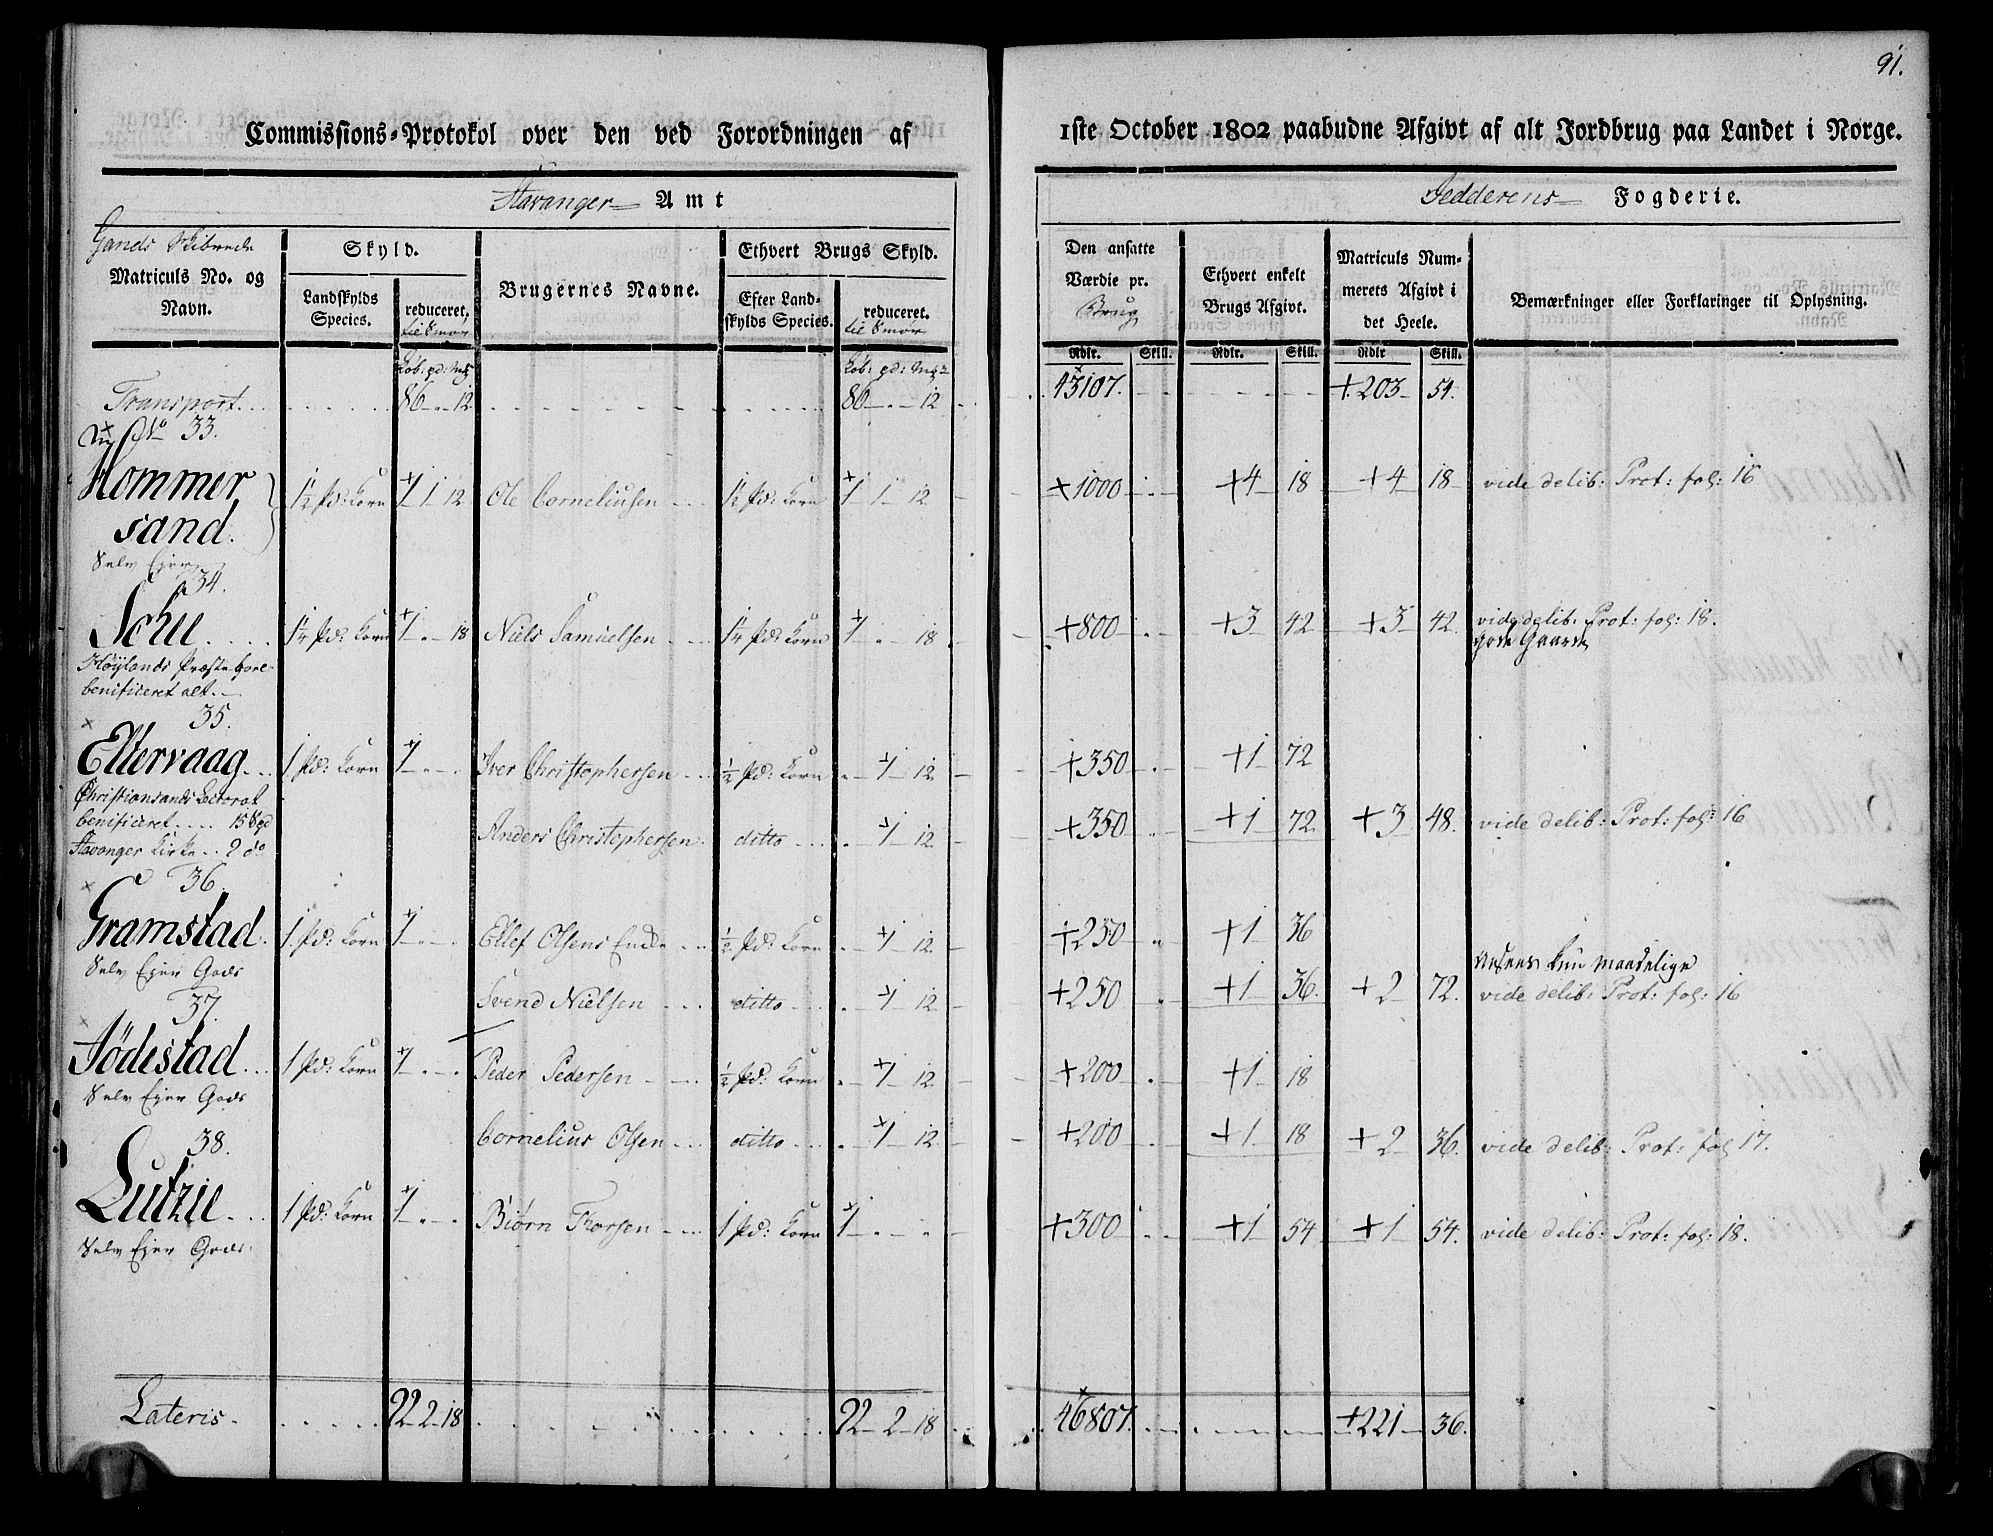 91.
Commissions-Protokol over den ved Forordningen af 1ste October 1802 paabudne Afgivt af alt Jordbrug paa Landet i Norge.
Stavanger Amt Jedderens Fogderie.
Gands Skibrede
Matriculs No. og Navn.
Skyld.
Landskylds Species.
reduceret, til Smør
Brugernes Navne.
Ethvert Brugs Skyld.
Efter Landskylds Species.
reduceret. til Smør
Den ansatte Værdie pr. Brug
Ethvert enkelt Brugs Afgivt.
Matriculs Nummerets Afgivt i det Heele.
Bemærkninger eller Forklaringer til Oplysning.
Løb: pd: Mk Løb: pd: Mk Rdlr. Skill. Rdlr. Skill. Rdlr Skill.
Transport 86 - 12 86 - 12 43107. +203 54.
No 33.
Hommersand. 1½ Pd: Korn 1 1 12 Ole Corneliusen 1½ Pd: Korn 1 1 12 +1000 +4 18 +4 18 vide delib: Prot: fol: 16
Selv Ejer
34.
Schu 1¼ Pd: Korn 1 - 18 Niels Samuelsen 1¼ Pd: Korn 1 18 +800 +3 42 +3 42 vide delib: Prot: fol: 18.
gode Gaarde
Høylands Præstebore
benificeret alt.
35.
Eltervaag 1 Pd: Korn 1 Iver Christophersen ½ Pd: Korn 1 12 +350 +1 72
Christiansands Lectorat
benificeret 15 Spd Anders Christophersen ditto 1 12 +350 +1 72 +3 48. vide delib: Prot: fol: 16
Stavanger Kirke 9 do
36.
Gramstad. 1 Pd: Korn 1 Ellef Olsens Enke ½ Pd: Korn 1 12 +250 +1 36
Selv Ejer Gods
kun maadelige
Svend Nielsen ditto 1 12 +250 +1 36. +2 72. vide delib: Prot: fol: 16
37.
Jødestad 1 Pd: Korn 1 Peder Pedersen ½ Pd: Korn 1 12 +200 +1 18
Selv Ejer Gods
Cornelius Olsen ditto 1 12 +200 +1 18 +2 36. vide delib: Prot: fol 17.
38.
Lutzie 1 Pd: Korn 1 Biørn Thorsen 1 Pd: Korn 1 +300 +1 54 +1 54. vide delib: Prot: fol: 18.
Selv Ejer Gods.
Lateris. 92-2-18 92-2-18 46807. +221 36.